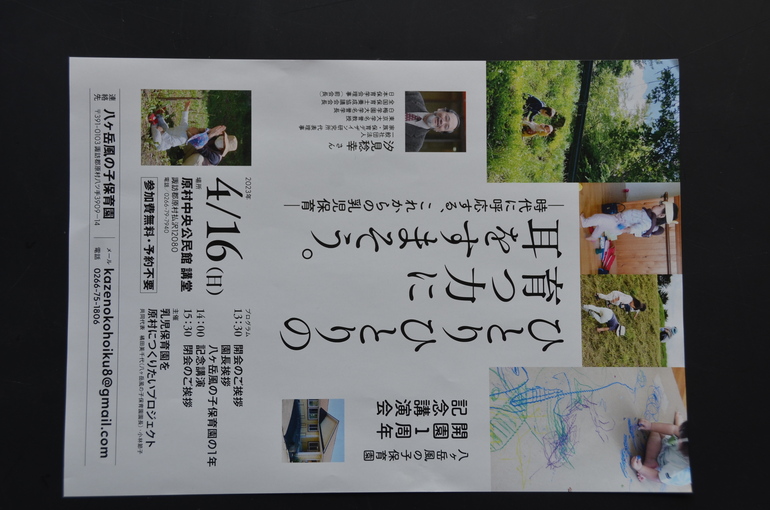 八ヶ岳風の子保育園
開園1周年
記念講演会
ひとりひとりの
育つ力に
耳をすまそう。
―時代に呼応する、これからの乳児保育―
汐見稔幸さん
一般社団法人
家族・保育デザイン研究所代表理事
東京大学名誉教授
白梅学園大学名誉学長
全国保育士養成協議会会長
日本保育学会理事(前会長)
2023年
4/16(日)
場所
原村中央公民館 講堂
諏訪郡原村払沢12080
電話:0266-79-7940
参加費無料・予約不要
プログラム
13:30 開会のご挨拶
園長挨拶
八ヶ岳風の子保育園の1年
14:00 記念講演
15:30 閉会のご挨拶
主催
乳児保育園を
原村につくりたいプロジェクト
連絡先 八ヶ岳風の子保育園
〒391-0103 諏訪郡原村八ツ手3909-14
メール kazenokohoiku8@gmail.com
電話 0266-75-1806